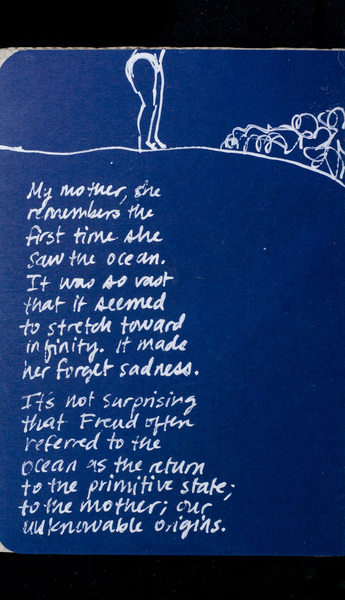 My mother, she
remembers the
first time she
saw the ocean.
It was so vast
that it seemed
to stretch toward
infinity. It made
her forget sadness.
It's not surprising
that Freud often
referred to the
ocean as the return
to the primitive state;
to the mother; our
unknowable origins.